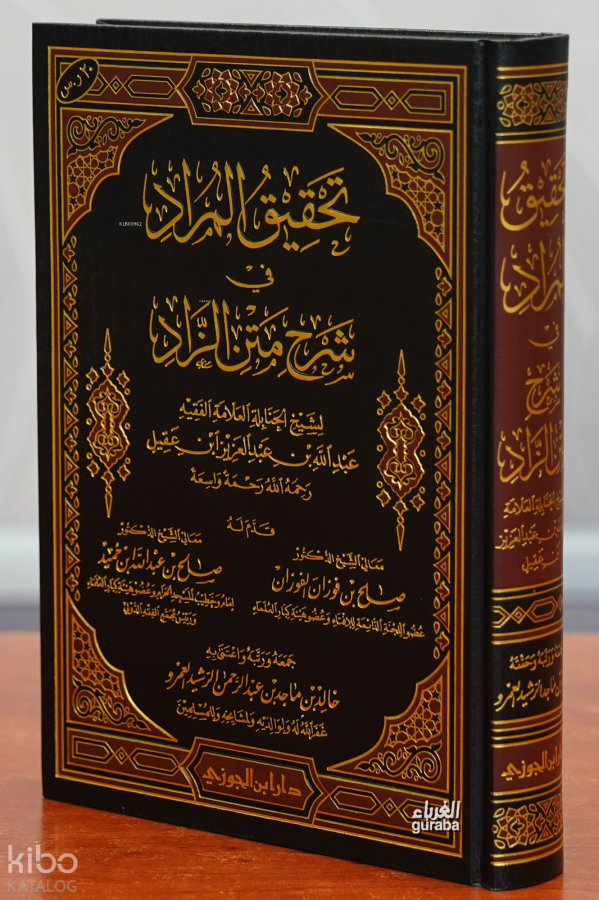 ٢٠ ر.س
تحقيق المراد
KLB03962
في
شرح متن الزاد
لشيخ الحنابلة العلامة الفقيه
عبد الله بن عبد العزيز ابن عقيل
رحمه الله رحمة واسعة
قدم له
معالي الشيخ الدكتور
صالح بن فوزان الفوزان
عضو اللجنة الدائمة للإفتاء وعضو هيئة كبار العلماء
معالي الشيخ الدكتور
صالح بن عبد الله ابن حميد
إمام وخطيب المسجد الحرام وعضو هيئة كبار العلماء
ورئيس مجمع الفقه الدولي
جمعه ورتبه واعتنى به
خالد بن ماجد بن عبد الرحمن الرشيد العمرو
غفر الله له ولوالديه ولمشايخه وللمسلمين
دار ابن الجوزي
تحقيق
المراد
في
شرح
متن الزاد
لشيخ الحنابلة العلامة
ابن عقيل
جمعه ورتبه وحققه
بن ماجد الرشيد العمرو
دار ابن الجوزي
الغرباء
guraba
kibo
KATALOG